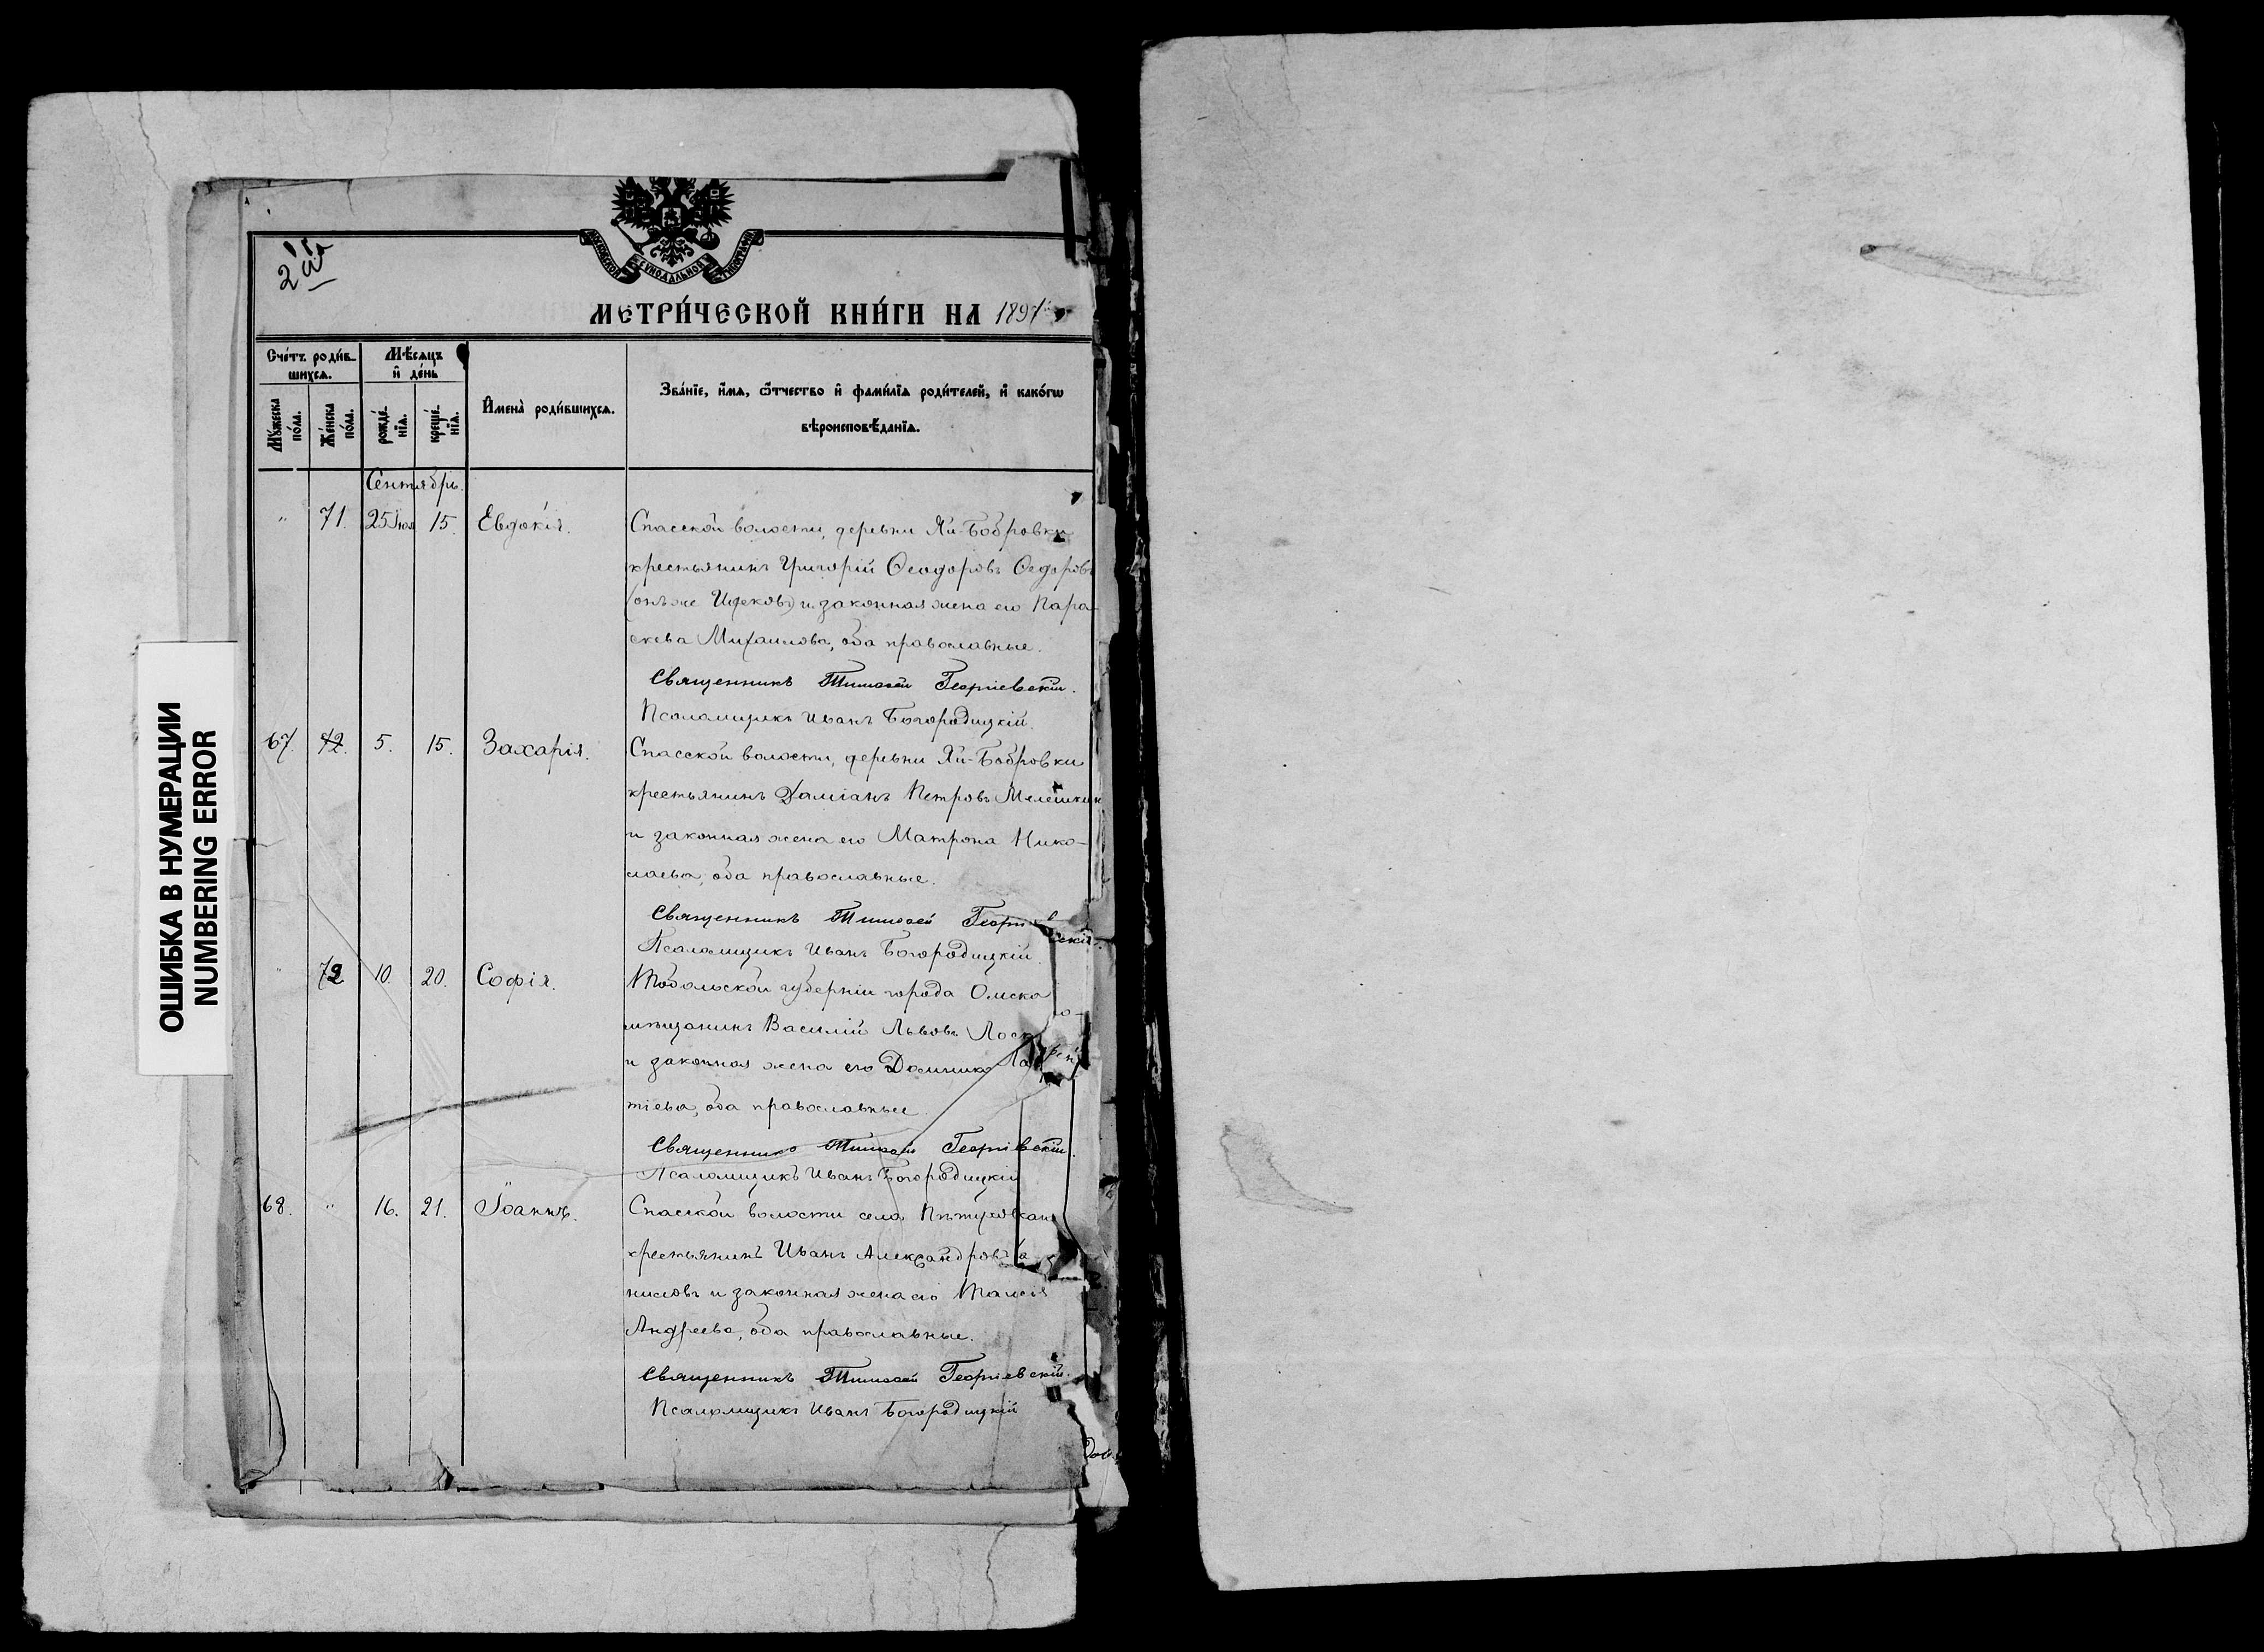 МОСКОВСКОЙ СѴНОДАЛЬНОЙ ТИПОГРАФІИ
МЕТРИ́ЧЕСКОЙ КНИ́ГИ НА 1897
Сче́тъ роди́в-
шихсѧ.
Мѣ́сѧцъ
и҆ де́нь
Мꙋ́жеска
по́ла.
Же́нска
по́ла.
рожде́-
нїѧ.
креще́-
нїѧ.
И҆мена̀ роди́вшихсѧ.
Зва́нїе, и҆́мѧ, ѻ҆́тчество и҆ фами́лїѧ роди́телей, и҆ како́гѡ
вѣроисповѣ́данїѧ.
Сентябрь.
" 71. 25 Іюл 15. Евдокія. Спасской волости, деревни Яи-Бобровки
крестьянинъ Григорій Ѳеодоровъ Ѳедоровъ
(онъ же) и законная жена его Пара-
скева Михаилова, оба православные.
Священникъ Тимоѳей Георгіевскій.
Псаломщикъ Иванъ Богородицкій.
67. 72. 5. 15. Захарія. Спасской волости, деревни Яи-Бобровки
крестьянинъ Даміанъ Петровъ Мелешкин
и законная жена его Матрона Нико-
лаева, оба православные.
Священникъ Тимоѳей Георгіевскій.
Псаломщикъ Иванъ Богородицкій.
" 72 10. 20. Софія. Тобольской губерніи города Омска
мѣщанинъ Василій Львовъ
и законная жена его Домника Лаврен
тіева, оба православные
Священникъ Тимоѳей Георгіевскій.
Псаломщикъ Иванъ Богородицкій
68. " 16. 21. Іоаннъ. Спасской волости села
крестьянинъ Иванъ Александровъ
нисовъ и законная жена его Таисія
Андреева, оба православные.
Священникъ Тимоѳей Георгіевскій.
Псаломщикъ Иванъ Богородицкій
ОШИБКА В НУМЕРАЦИИ
NUMBERING ERROR